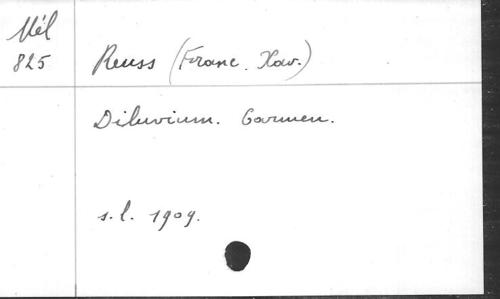 Mél
825
Reuss (Franc. Xav.)
Diluvium. Carmen.
s.l. 1909.